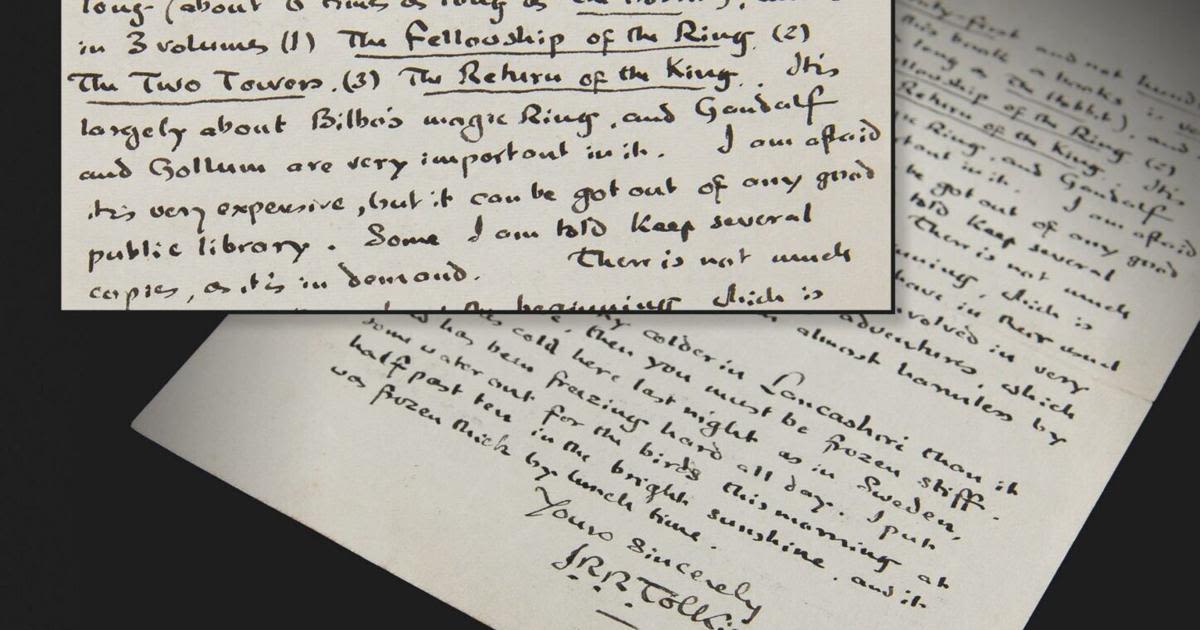 long (about 6 times as long as The Hobbit),
in 3 volumes (1) The Fellowship of the Ring (2)
The Two Towers. (3) The Return of the King. It is
largely about Bilbo's magic Ring, and Gandalf
and Gollum are very important in it. I am afraid
it is very expensive, but it can be got out of any good
public library. Some I am told keep several
copies, as it's in demand. There is not much
the beginning which is
first and not
this book a
long as The Hobbit), and
Fellowship of the Ring (2)
Return of the King. It is
Ring, and Gandalf
tant in it. I am afraid
be got out of any good
told keep several
There is not much
nning, which is
have in their usual
volved in very
adventures, which
almost harmless by
colder in Lancashire than it
, then you must be frozen stiff.
cold here last night as in Sweden,
has been freezing hard all day. I put
some water out for the birds this morning at
half past ten in the bright sunshine, and it
was frozen thick by lunch time.
Yours sincerely
J.R.R. Tolki